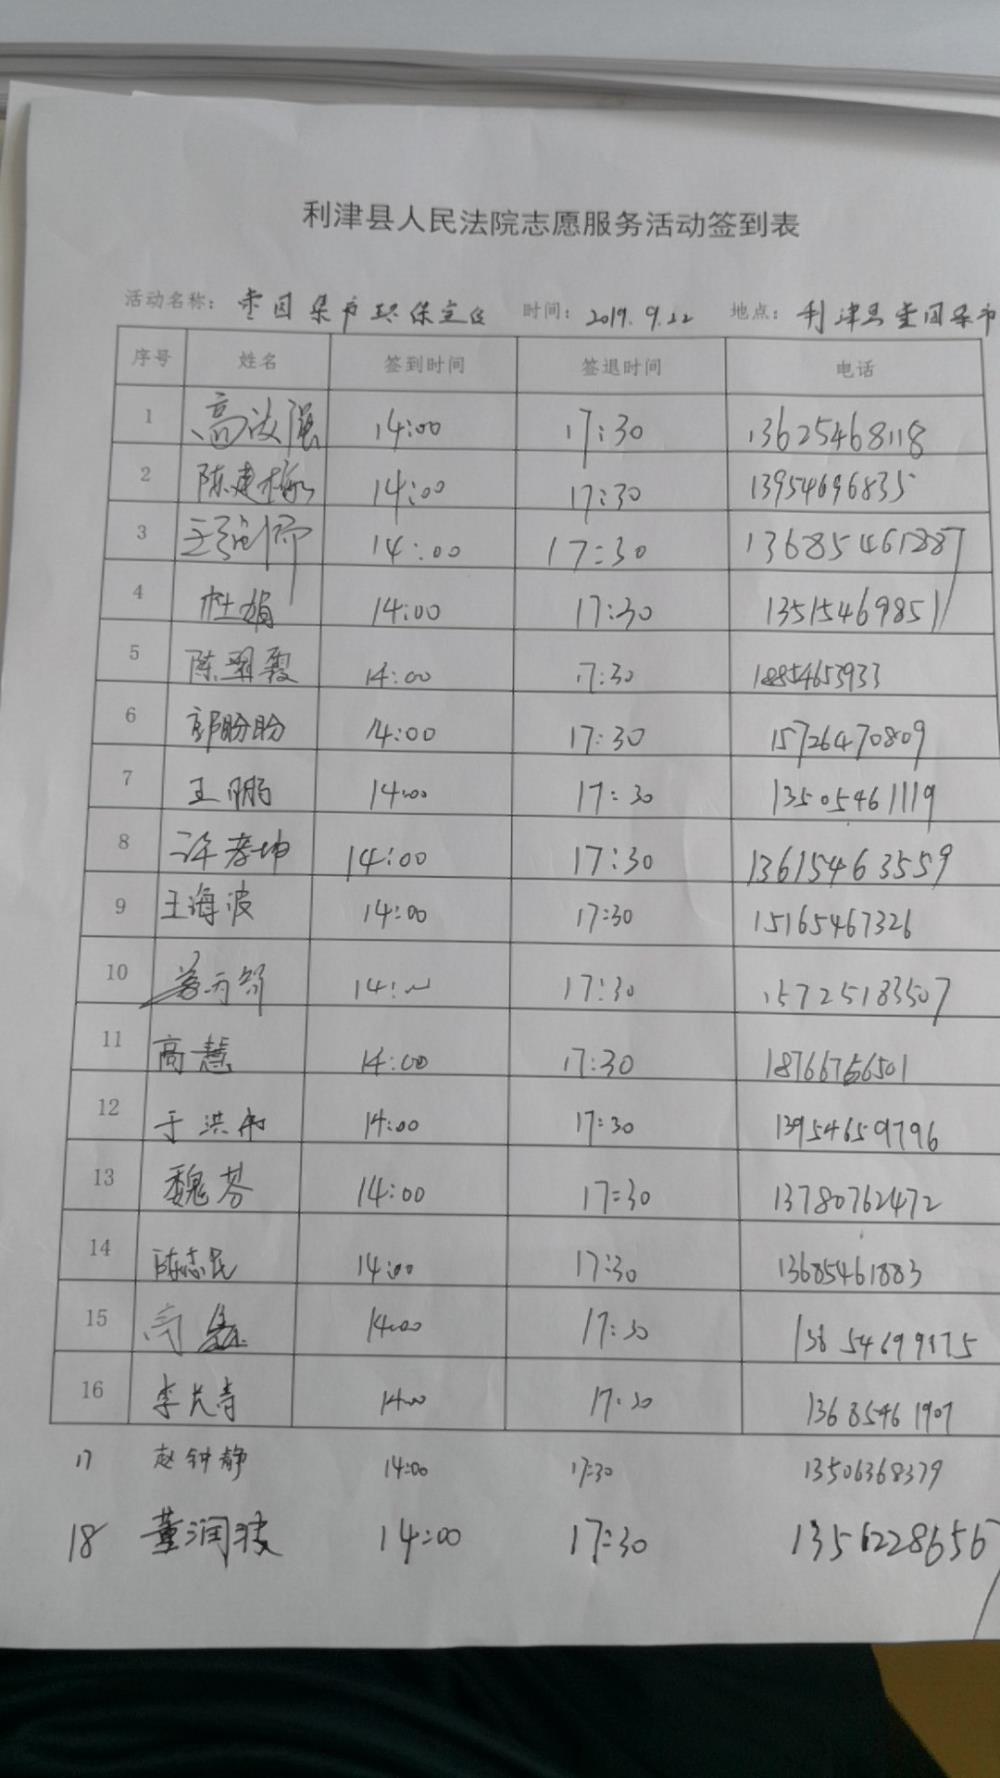 利津县人民法院志愿服务活动签到表
活动名称: 枣园集市环保宣传 时间: 2019.9.22 地点: 利津县枣园集市
序号 姓名 签到时间 签退时间 电话
1 高波强 14:00 17:30 13625468118
2 陈建梅 14:00 17:30 13954696835
3 14:00 17:30 13685461887
4 杜娟 14:00 17:30 13515469851
5 陈翠霞 14:00 17:30 18854653933
6 郭盼盼 14:00 17:30 15726470809
7 王鹏 14:00 17:30 13505461119
8 许孝坤 14:00 17:30 13615463559
9 王海波 14:00 17:30 15165467326
10 14:00 17:30 15725183507
11 高慧 14:00 17:30 18766756501
12 于洪 14:00 17:30 13954659796
13 魏芬 14:00 17:30 13780762472
14 陈志民 14:00 17:30 13685461883
15 高 14:00 17:30
16 李长青 14:00 17:30 13685461907
17 赵钟静 14:00 17:30 13506368379
18 董润波 14:00 17:30 1356228656